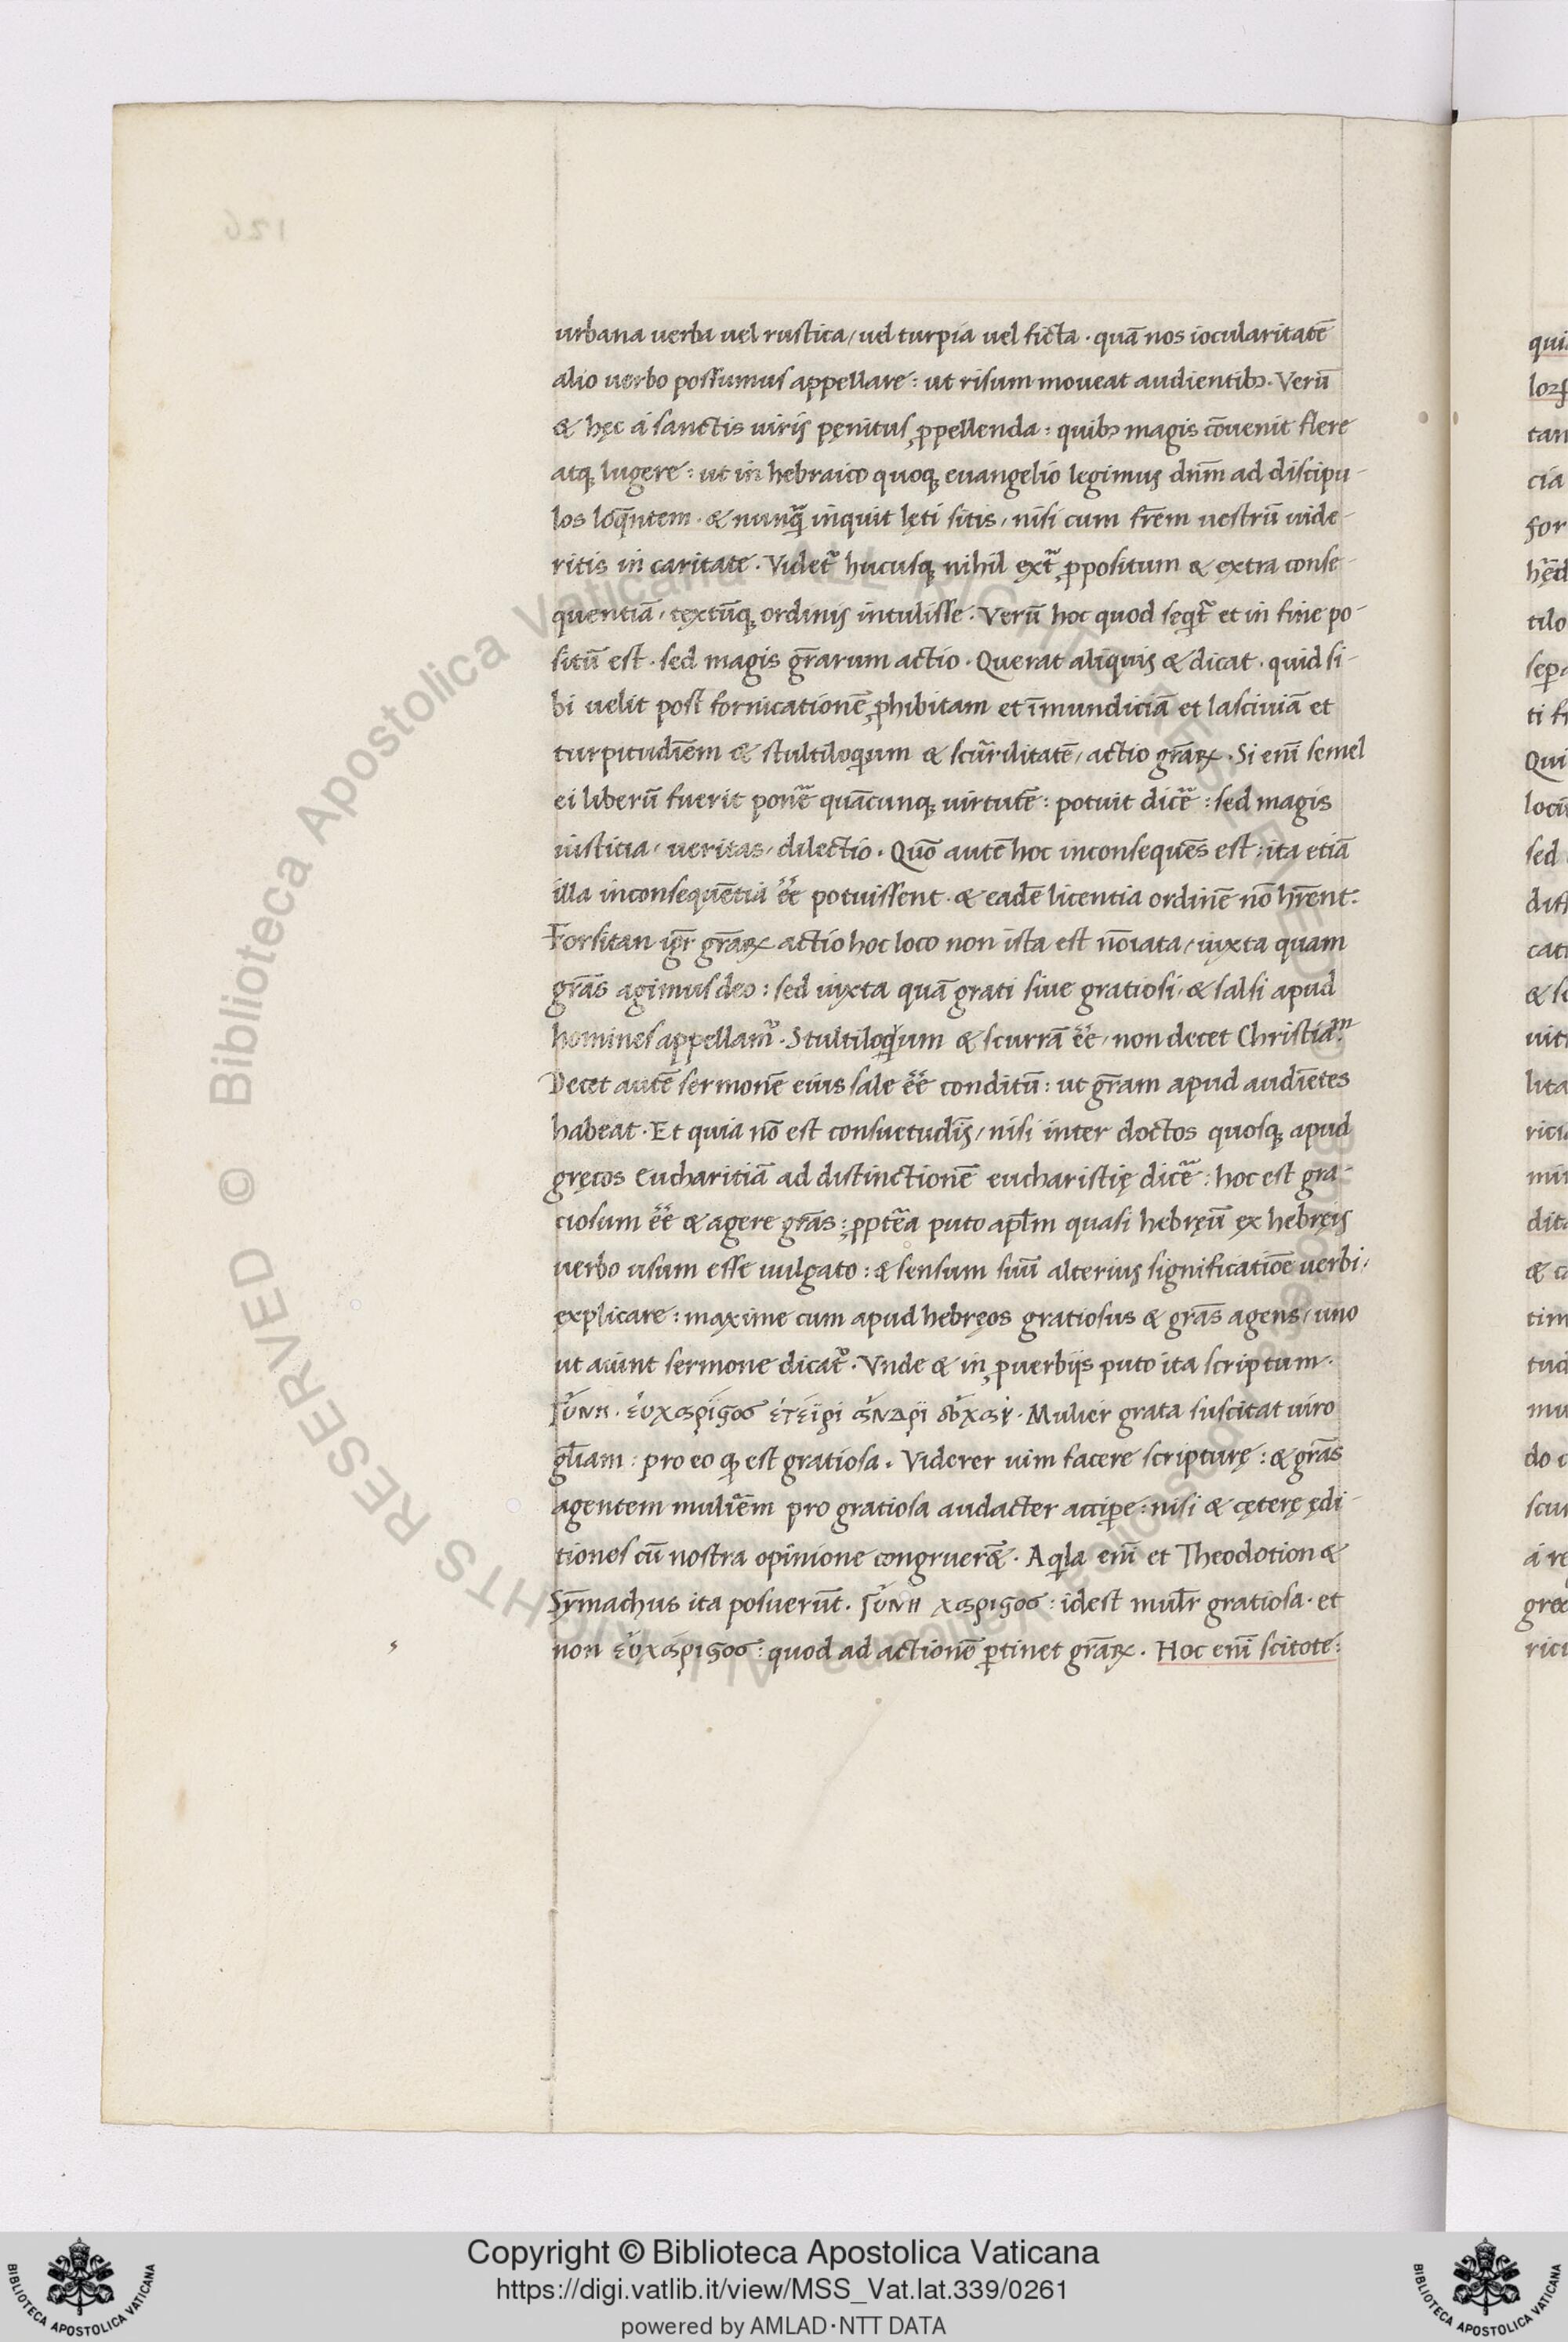 urbana uerba uel rustica, uel turpia uel ficta · quā nos iocularitatē
alio uerbo possumus appellare: ut risum moueat audientibꝫ. Verū
& hęc á sanctis uiris pęnitus ꝓpellenda: quibꝫ magis cōuenit flere
atqꝫ lugere: ut in hebraico quoqꝫ euangelio legimus dn̄m ad discipu-
los loq̄ntem · & nunq̄ inquit lęti sitis, nisi cum frēm uestrū uide-
ritis in caritate. Videt᷑ hucusqꝫ nihil extᷓ ꝓpositum & extra conse-
quentiā, textūqꝫ ordinis intulisse. Verū hoc quod seqͥt᷑ et in fine po-
sitū est · sed magis gr̄arum actio. Querat aliquis & dicat · quid si-
bi uelit post fornicationē ꝓhibitam et īmundiciā et lasciuiā et
turpitudīem & stultiloqͥum & scurrilitatē, actio gr̄aꝝ. Si enī semel
ei liberū fuerit ponē quācunqꝫ uirtutē: potuit dicē: sed magis
iusticia, ueritas, dilectio. Quō autē hoc inconsequēs est: ita etiā
illa inconsequētia ēē potuissent · & eadē licentia ordinē nō hr̄ent.
Forsitan igr̄ gr̄aꝝ actio hoc loco non ista est nōiata, iuxta quam
grās agimus deo: sed iuxta quā grati siue gratiosi, & salsi apud
homines appellam᷑. Stultiloqͥum & scurrā ēē, non decet Christiāᵐ.
Decet autē sermonē eius sale ēē conditū: ut gr̄am apud audiētes
habeat. Et quia nō est consuetudīs, nisi inter doctos quosqꝫ apud
gręcos eucharitiā ad distinctionē eucharistię dicē: hoc est gra-
ciosum ēē & agere grās: ꝓptēa puto apl̄m quasi hebręū ex hebręis
uerbo usum esse uulgato: & sensum suū alterius significatiōe uerbi,
explicare: maxime cum apud hebręos gratiosus & grās agens, uno
ut aiunt sermone dicat᷑. Vnde & in ꝓuerbijs puto ita scriptum.
γύνη. ἐυχαρίϊςος ἐγείρι ἄνδρϊ δόχαν. Mulier grata suscitat uiro
gl̄iam: pro eo qꝫ est gratiosa. Viderer uim facere scripturę: & grās
agentem muliēm pro gratiosa audacter accipe: nisi & cęterę ędi-
tiones cū nostra opinione congruer&. Aqͥla enī et Theodotion &
Sȳmachus ita posuerūt. γύνη χαριςος: idest mul̄r gratiosa · et
non ἐυχάριςος: quod ad actionē ꝑtinet gr̄aꝝ. Hoc enī scitote:
Copyright © Biblioteca Apostolica Vaticana
https://digi.vatlib.it/view/MSS_Vat.lat.339/0261
powered by AMLAD·NTT DATA